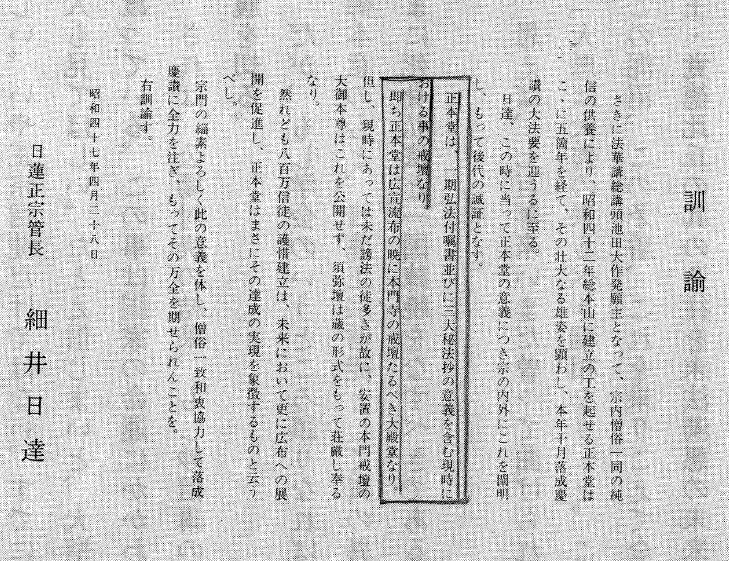 訓諭
さきに法華講総講頭池田大作発願主となって、宗内僧俗一同の純
信の供養により、昭和四十二年総本山に建立の工を起せる正本堂は
こゝに五箇年を経て、その壮大なる雄姿を顕わし、本年十月落成慶
讃の大法要を迎うるに至る。
日達、この時に当って正本堂の意義につき宗の内外にこれを闡明
し、もって後代の誠証となす。
正本堂は、一期弘法付嘱書並びに三大秘法抄の意義を含む現時に
おける事の戒壇なり。
即ち正本堂は広宣流布の暁に本門寺の戒壇たるべき大殿堂なり。
但し、現時にあっては未だ謗法の徒多きが故に、安置の本門戒壇の
大御本尊はこれを公開せず、須弥壇は蔵の形式をもって荘厳し奉る
なり。
然れども八百万信徒の護惜建立は、未来において更に広布への展
開を促進し、正本堂はまさにその達成の実現を象徴するものと云う
べし。
宗門の緇素よろしく此の意義を体し、僧俗一致和衷協力して落成
慶讃に全力を注ぎ、もってその万全を期せられんことを。
右訓諭す。
昭和四十七年四月二十八日
日蓮正宗管長 細井日達